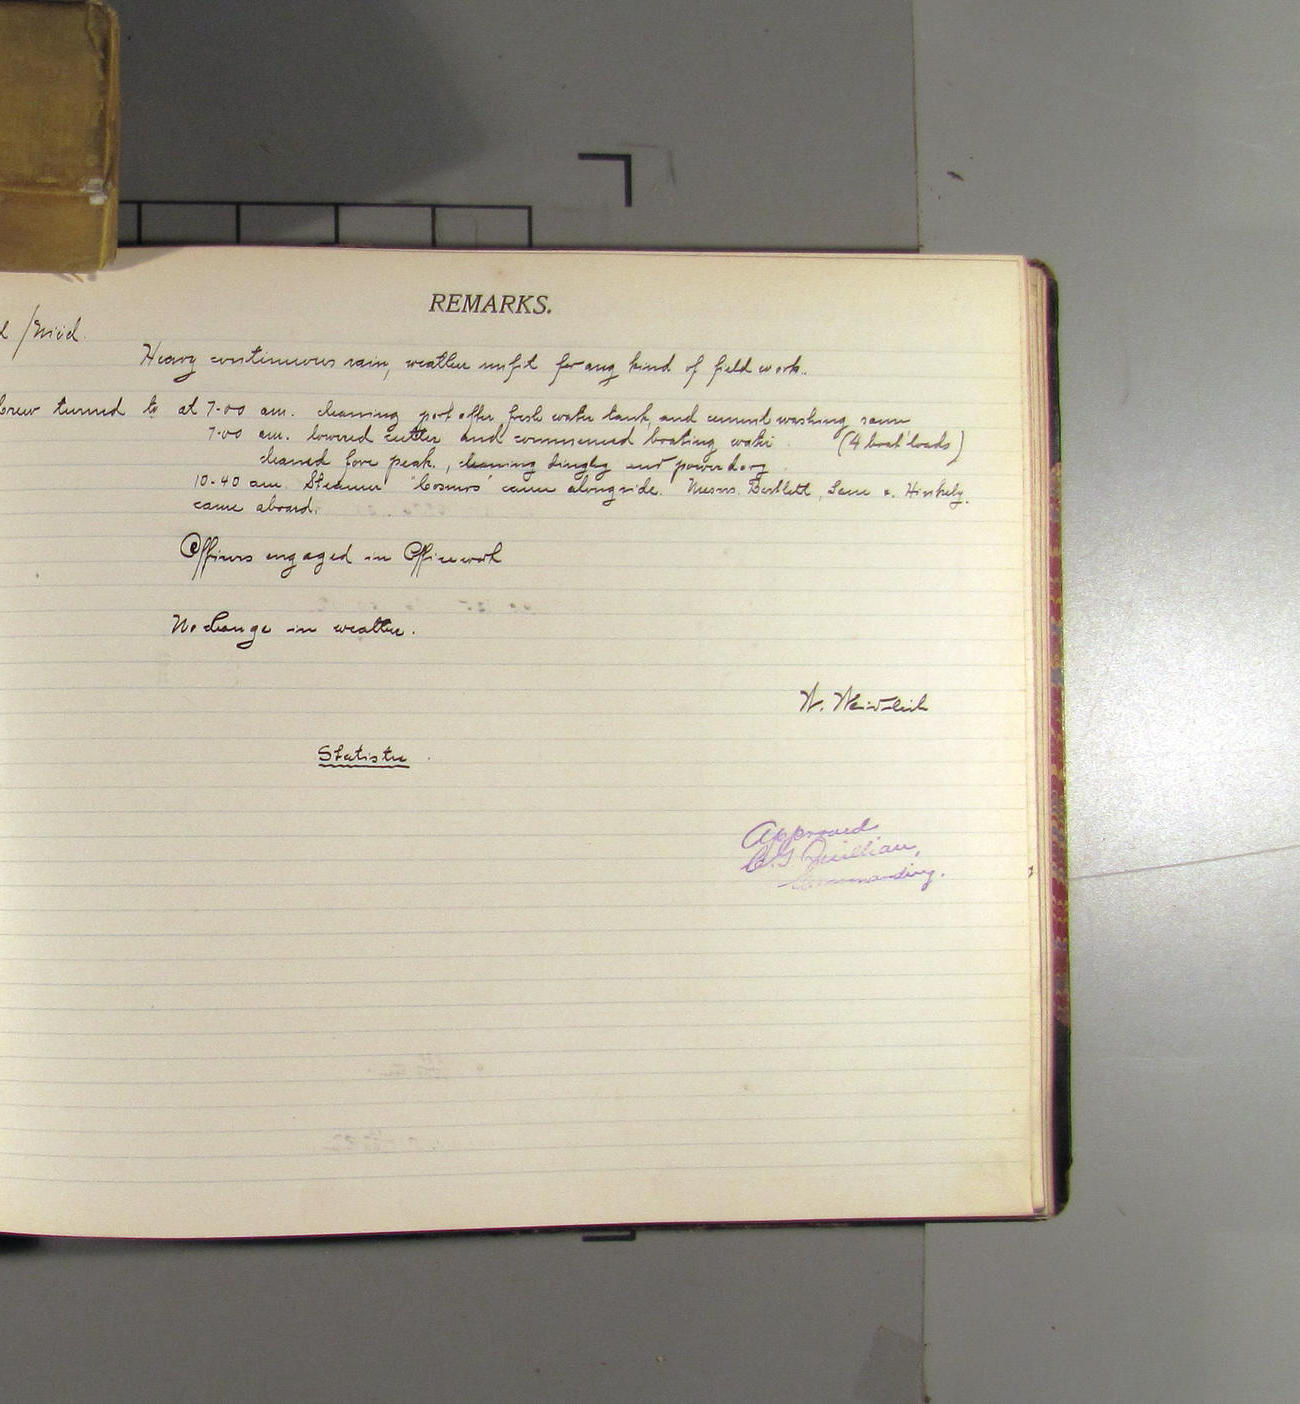 REMARKS.
Heavy continuous rain, weather unfit for any kind of field work.
Crew turned to at 7-00 am. cleaning port after fresh water tank, and cement washing same
7-00 am. lowered cutter and commenced boating water. (4 boat loads)
cleaned fore peak, cleaning dinghy and power dory
10-40 am. Steamer "Cosmos" came alongside. Messrs. Bartlett, Lane &
came aboard.
Officers engaged in Office work
No change in weather.
W. Weidlich
Statistic
Approved
C.G. Quillian,
Commanding.